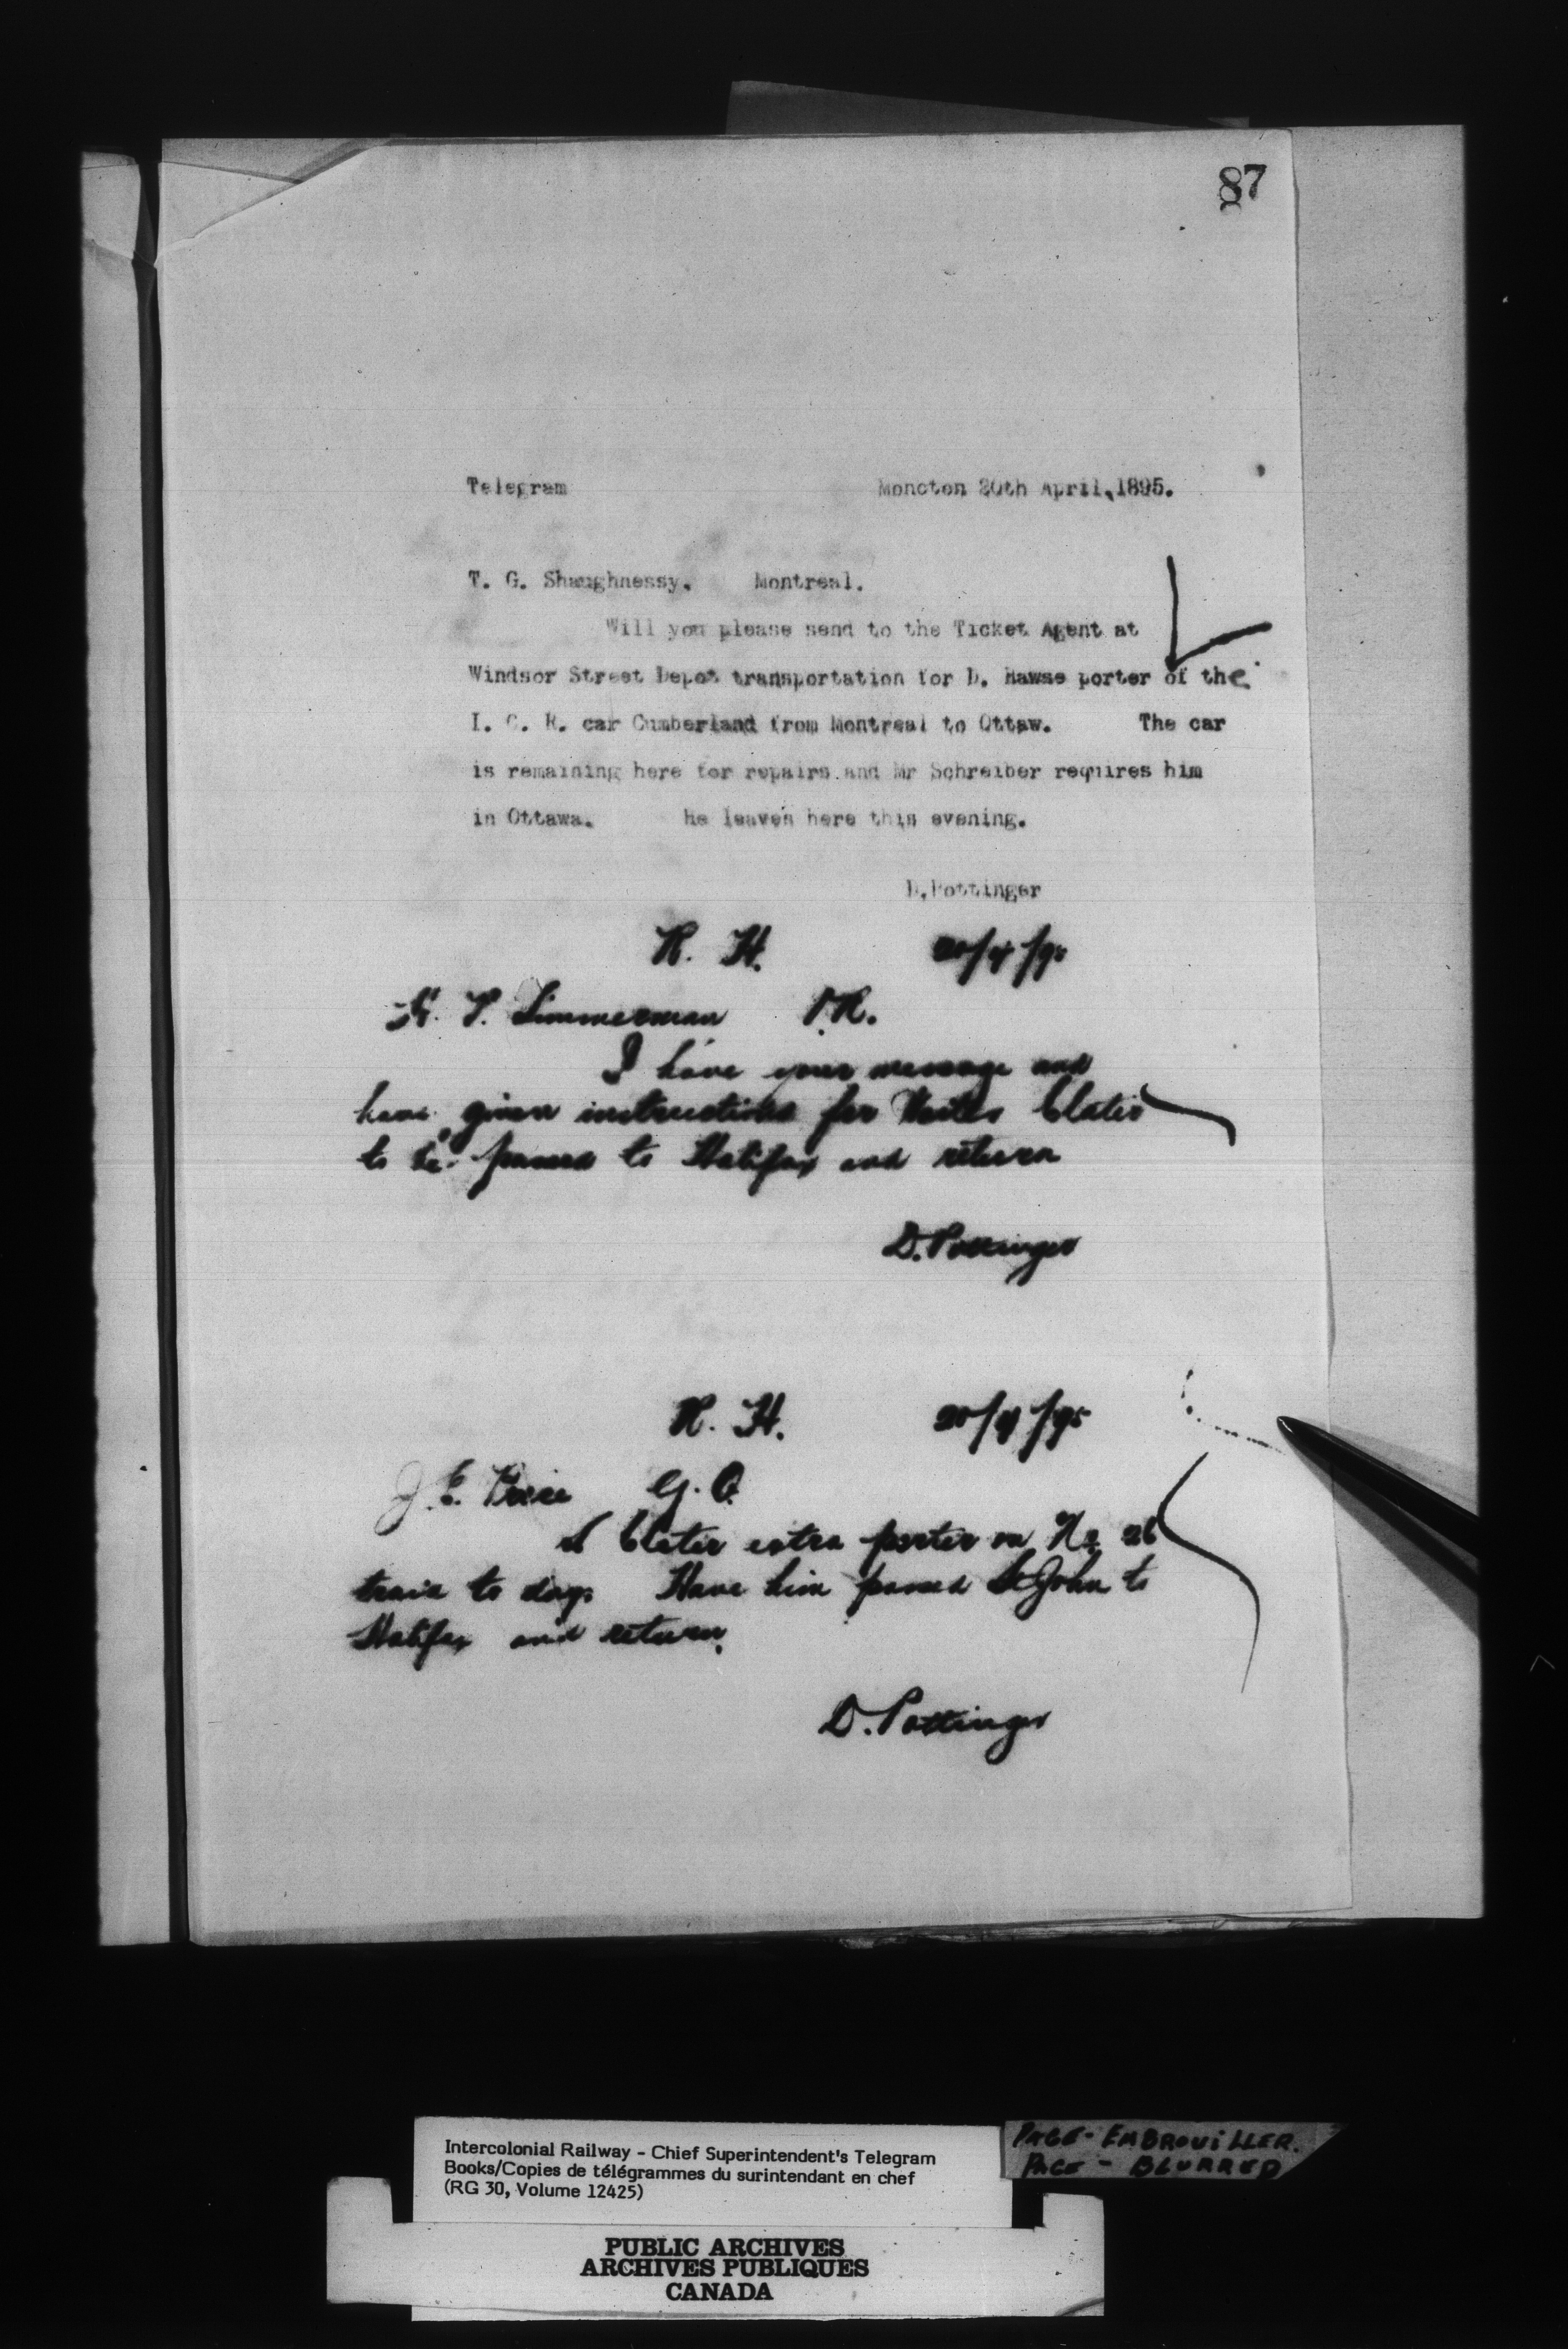 87
Telegram Moncton 20th April, 1895.
T. G. Shaughnessy. Montreal.
Will you please send to the Ticket Agent at
Windsor Street Depot transportation for D. Hawse porter of the
I. C. R. car Cumberland from Montreal to Ottaw. The car
is remaining here for repairs and Mr Schreiber requires him
in Ottawa. He leaves here this evening.
D. Pottinger
R. H. 20/4/95
Zimmerman
I have your message and
have given instructions for
to be passed to Halifax and return
D. Pottinger
R. H. 20/4/95
J. E. Price G. O.
extra porter on No. 26
train to day. Have him passed St John to
Halifax and return.
D. Pottinger
Intercolonial Railway - Chief Superintendent's Telegram
Books/Copies de télégrammes du surintendant en chef
(RG 30, Volume 12425)
PAGE - EMBROUILLER.
PAGE - BLURRED
PUBLIC ARCHIVES
ARCHIVES PUBLIQUES
CANADA